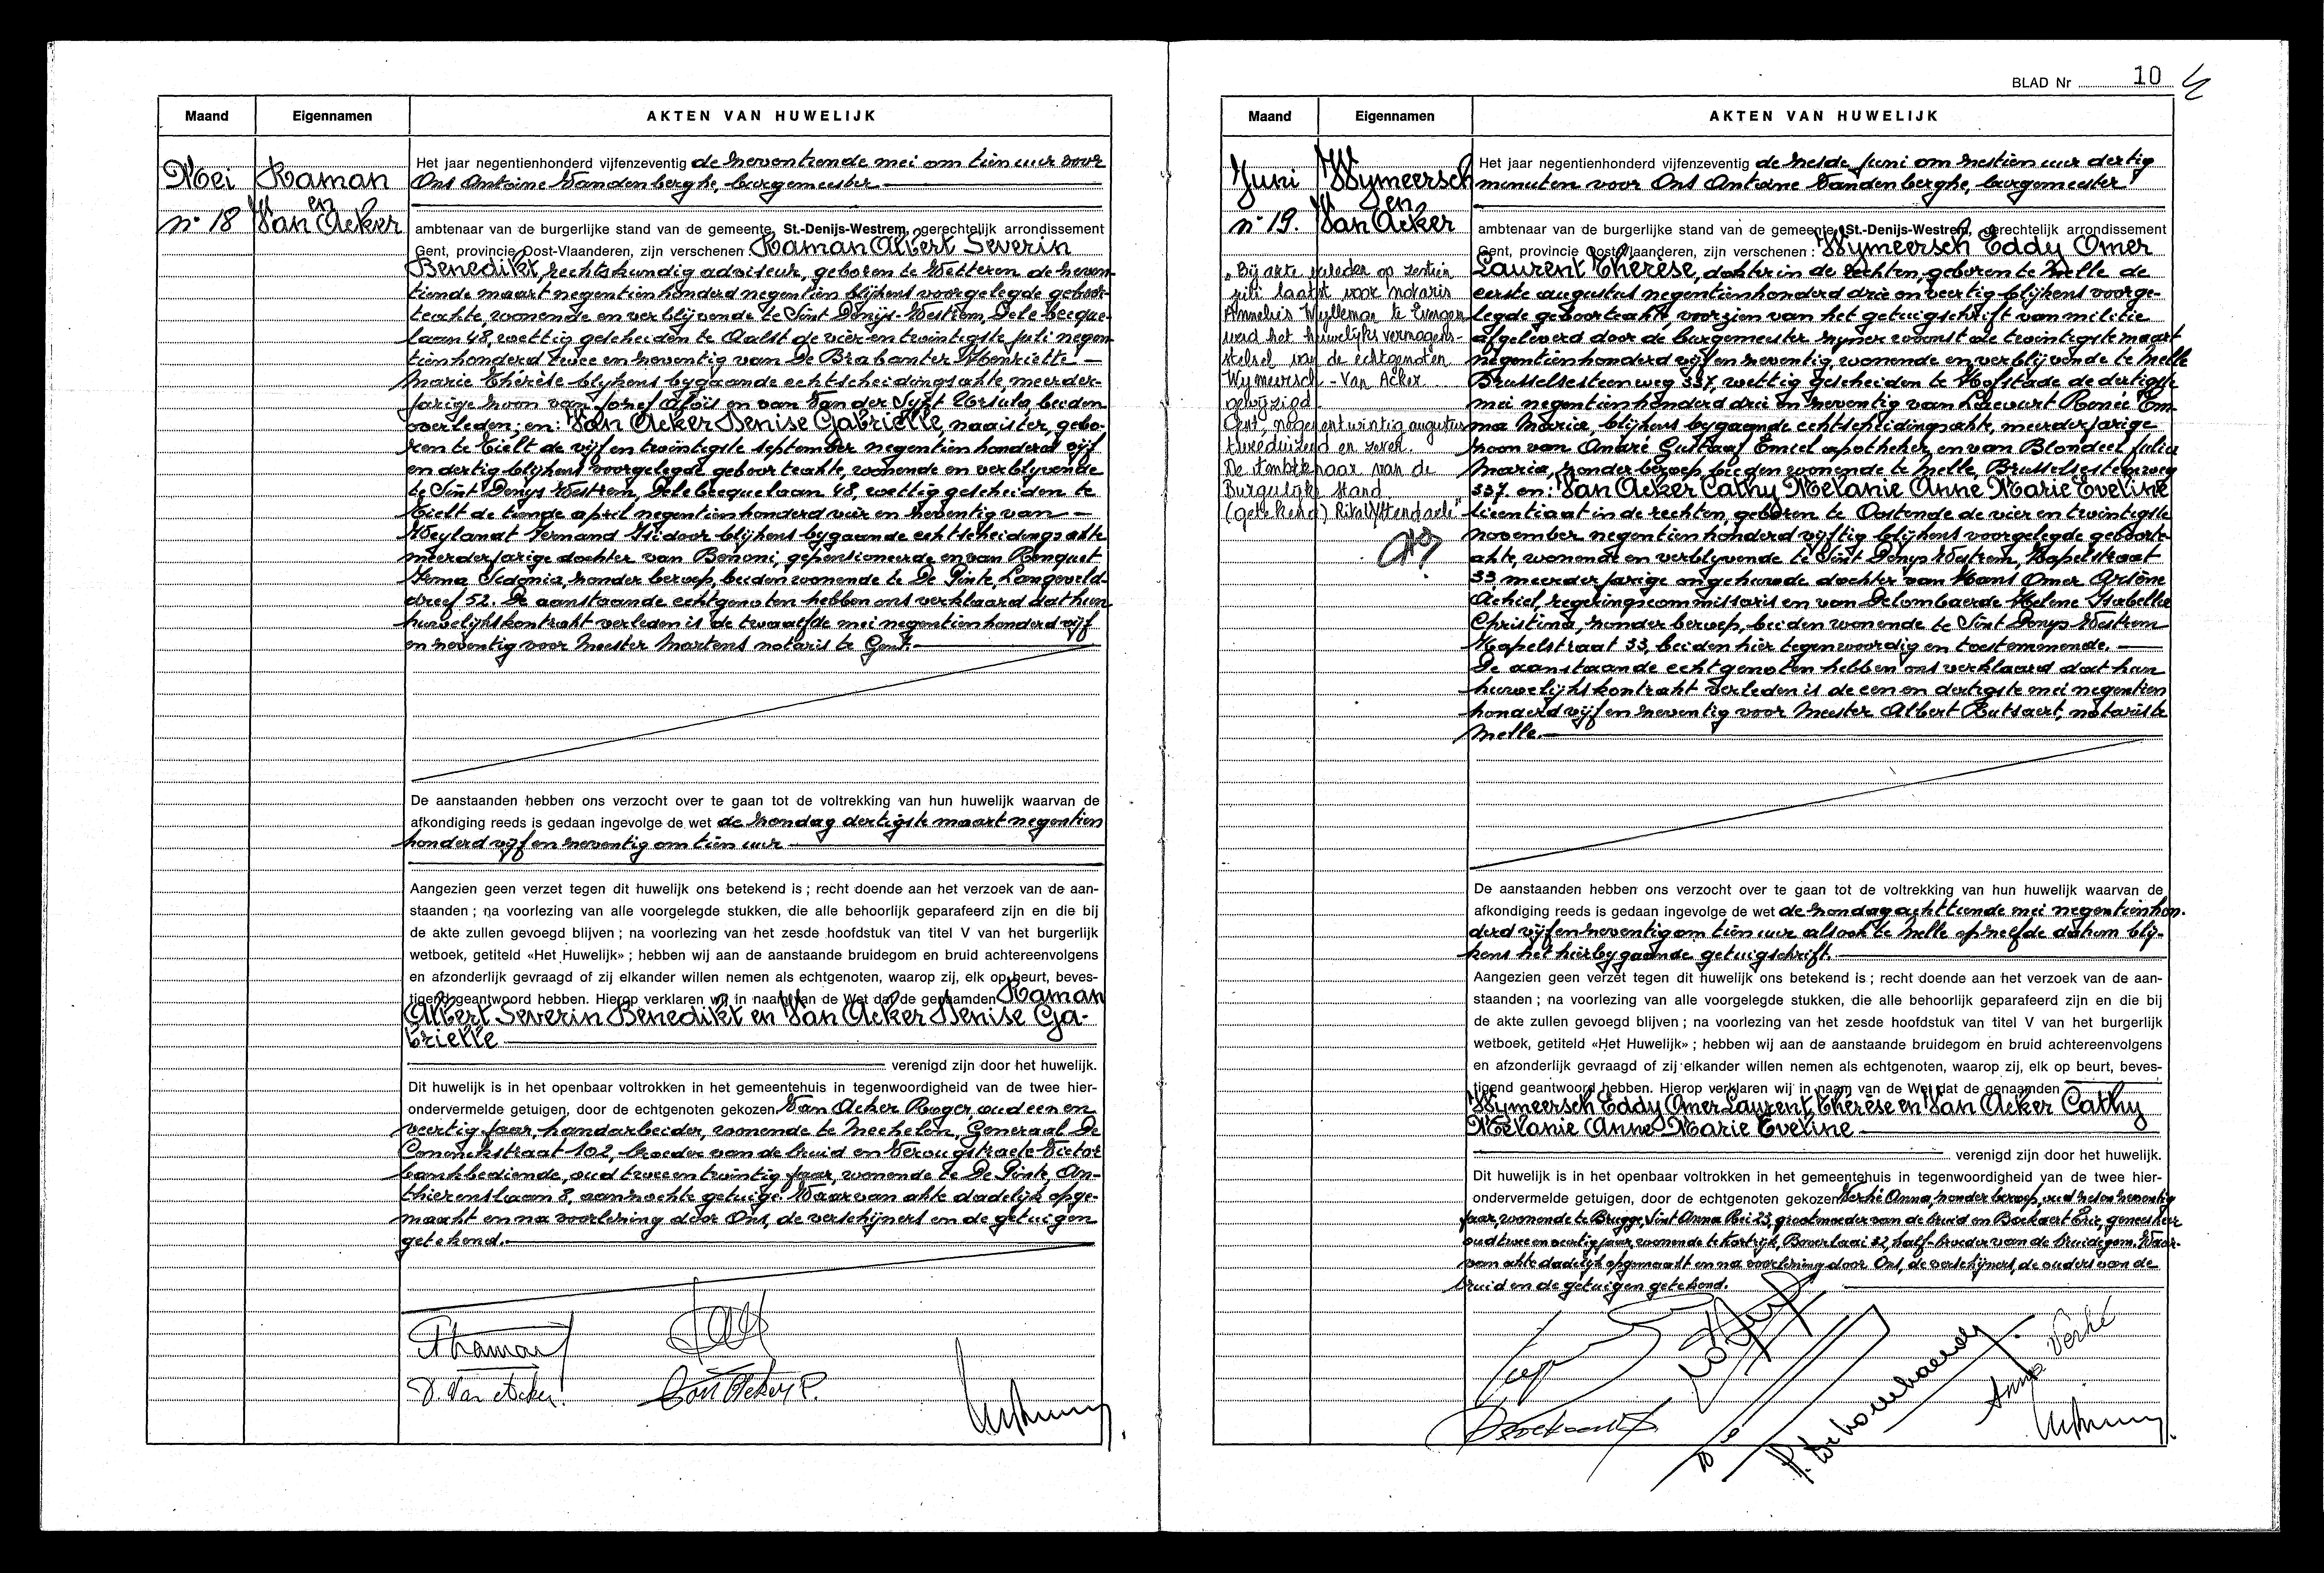 Maand Eigennamen AKTEN VAN HUWELIJK
Mei
n° 18
Haman
en
Van Acker
Het jaar negentienhonderd vijfenzeventig de zeventiende mei om tien uur voor
Ons Antoine Vandenberghe, burgemeester
ambtenaar van de burgerlijke stand van de gemeente St.-Denijs-Westrem, gerechtelijk arrondissement
Gent, provincie Oost-Vlaanderen, zijn verschenen: Haman Albert Severin
Benedikt, rechtskundig adviseur, geboren te Wetteren de zeven-
tiende maart negentienhonderd negentien blijkens voorgelegde geboor-
teakte, wonende en verblijvende te Sint Denijs-Westrem, Delebecque-
laan 48, wettig gescheiden te Aalst de vier en twintigste juli negen-
tienhonderd twee en zeventig van De Brabanter Henriette
Marie Thérèse blijkens bijgaande echtscheidingsakte, meerder-
jarige zoon van Jozef Aloïs en van Van der Sypt Ursula, beiden
overleden; en: Van Acker Denise Gabrielle, naaister, gebo-
ren te Tielt de vijf en twintigste september negentienhonderd vijf
en dertig blijkens voorgelegde geboorteakte, wonende en verblijvende
te Sint Denys Westrem, Delebecquelaan 48, wettig gescheiden te
Tielt de tiende april negentienhonderd vier en zeventig van
Weylandt Fernand Isidoor blijkens bygaande echtscheidingsakte
meerderjarige dochter van Benoni, gepensioneerde en van Ronquet
Irma Sidonia, zonder beroep, beiden wonende te De Pinte, Langeveld-
dreef 52. De aanstaande echtgenoten hebben ons verklaard dat hun
huwelijkskontrakt verleden is de twaalfde mei negentienhonderd vijf
en zeventig voor Meester Martens notaris te Gent.
De aanstaanden hebben ons verzocht over te gaan tot de voltrekking van hun huwelijk waarvan de
afkondiging reeds is gedaan ingevolge de wet de zondag dertigste maart negentien
honderd vijf en zeventig om tien uur
Aangezien geen verzet tegen dit huwelijk ons betekend is ; recht doende aan het verzoek van de aan-
staanden ; na voorlezing van alle voorgelegde stukken, die alle behoorlijk geparafeerd zijn en die bij
de akte zullen gevoegd blijven ; na voorlezing van het zesde hoofdstuk van titel V van het burgerlijk
wetboek, getiteld «Het Huwelijk» ; hebben wij aan de aanstaande bruidegom en bruid achtereenvolgens
en afzonderlijk gevraagd of zij elkander willen nemen als echtgenoten, waarop zij, elk op beurt, beves-
tigend geantwoord hebben. Hierop verklaren wij in naam van de Wet dat de genaamden Haman
Albert Severin Benedikt en Van Acker Denise Ga-
brielle
verenigd zijn door het huwelijk.
Dit huwelijk is in het openbaar voltrokken in het gemeentehuis in tegenwoordigheid van de twee hier-
ondervermelde getuigen, door de echtgenoten gekozen Van Acker Roger, oud een en
veertig jaar, handarbeider, wonende te Mechelen, Generaal De
Ceuninckstraat 102, broeder van de bruid en Verougstraete Victor
bankbediende, oud twee en twintig jaar, wonende te De Pinte, An-
thierenslaan 8, aanzochte getuige. Waarvan akte dadelijk opge-
maakt en na voorlezing door Ons, de verschijners en de getuigen
getekend.
D. Van Acker
BLAD Nr 10
Maand Eigennamen AKTEN VAN HUWELIJK
Juni
n° 19.
Wymeersch
en
Van Acker
„Bij akte verleden op zestien
juli laatst voor notaris
Annelies Wylleman te Evergem
werd het huwelijksvermogens-
stelsel van de echtgenoten
Wymeersch - Van Acker
gewijzigd.
Gent, negenentwintig augustus
tweeduizend en zeven.
De Ambtenaar van de
Burgerlijke Stand.
(getekend)
Het jaar negentienhonderd vijfenzeventig de zesde juni om zestien uur dertig
minuten voor Ons Antoine Vandenberghe, burgemeester
ambtenaar van de burgerlijke stand van de gemeente St.-Denijs-Westrem, gerechtelijk arrondissement
Gent, provincie Oost-Vlaanderen, zijn verschenen: Wymeersch Eddy Omer
Laurent Thérèse, dokter in de rechten, geboren te Melle de
eerste augustus negentienhonderd drie en veertig blijkens voorge-
legde geboorteakte, voorzien van het getuigschrift van militie
afgeleverd door de burgemeester zyner woonst de twintigste maart
negentienhonderd vijf en zeventig, wonende en verblijvende te Melle
Brusselsesteenweg 337, wettig gescheiden te Hofstade de dertigste
mei negentienhonderd drie en zeventig van Lievart Renée Em-
ma Maria, blijkens bygaande echtscheidingsakte, meerderjarige
zoon van André Gustaaf Emiel apotheker, en van Blondeel Julia
Maria, zonder beroep, beiden wonende te Melle, Brusselsesteenweg
337. en: Van Acker Cathy Melanie Anne Marie Eveline
licentiaat in de rechten, geboren te Oostende de vier en twintigste
november negentienhonderd vijftig blijkens voorgelegde geboorte-
akte, wonende en verblijvende te Sint Denys Westrem, Kapelstraat
33, meerderjarige ongehuwde dochter van Hans Omer Arsène
Achiel, regeringscommissaris en van Delombaerde Helene Isabelle
Christina, zonder beroep, beiden wonende te Sint Denys Westrem
Kapelstraat 33, beiden hier tegenwoordig en toestemmende.
De aanstaande echtgenoten hebben ons verklaard dat hun
huwelijkskontrakt verleden is de een en dertigste mei negentien
honderd vijf en zeventig voor Meester Albert Rutsaert, notaris te
Melle.
De aanstaanden hebben ons verzocht over te gaan tot de voltrekking van hun huwelijk waarvan de
afkondiging reeds is gedaan ingevolge de wet de zondag achttiende mei negentienhon-
derd vijf en zeventig om tien uur alsook te Melle op zelfde datum blij-
kens het hierbygaande getuigschrift.
Aangezien geen verzet tegen dit huwelijk ons betekend is ; recht doende aan het verzoek van de aan-
staanden ; na voorlezing van alle voorgelegde stukken, die alle behoorlijk geparafeerd zijn en die bij
de akte zullen gevoegd blijven ; na voorlezing van het zesde hoofdstuk van titel V van het burgerlijk
wetboek, getiteld «Het Huwelijk» ; hebben wij aan de aanstaande bruidegom en bruid achtereenvolgens
en afzonderlijk gevraagd of zij elkander willen nemen als echtgenoten, waarop zij, elk op beurt, beves-
tigend geantwoord hebben. Hierop verklaren wij in naam van de Wet dat de genaamden
Wymeersch Eddy Omer Laurent Thérèse en Van Acker Cathy
Melanie Anne Marie Eveline
verenigd zijn door het huwelijk.
Dit huwelijk is in het openbaar voltrokken in het gemeentehuis in tegenwoordigheid van de twee hier-
ondervermelde getuigen, door de echtgenoten gekozen Verhé Anna, zonder beroep, oud zes en zeventig
jaar, wonende te Brugge, Sint Anna Rei 23, grootmoeder van de bruid en Boekaert Eric, geneesheer
oud twee en veertig jaar, wonende te Kortrijk, Beverlaai 32, half-broeder van de bruidegom. Waar-
van akte dadelijk opgemaakt en na voorlezing door Ons, de verschijners, de ouders van de
bruid en de getuigen getekend.
Anna Verhé